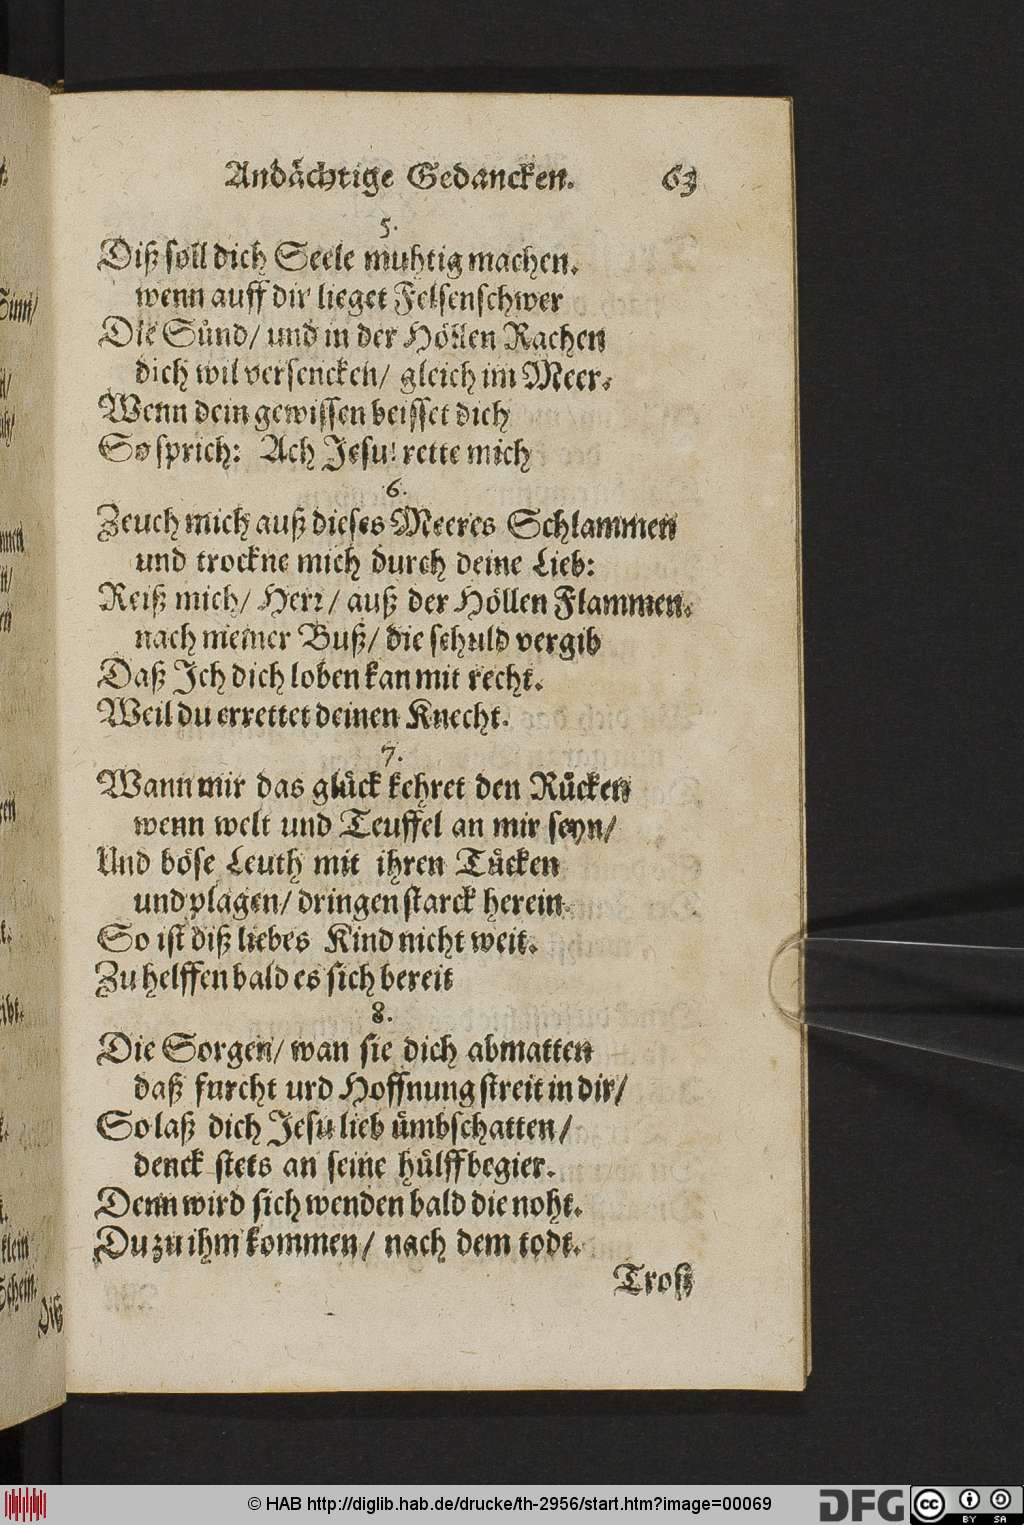 Andächtige Gedancken. 63
5.
Diß soll dich Seele muhtig machen.
wenn auff dir lieget Felsenschwer
Die Sünd/ und in der Höllen Rachen
dich wil versencken/ gleich im Meer.
Wenn dein gewissen beisset dich
So sprich: Ach Jesu! rette mich
6.
Zeuch mich auß dieses Meeres Schlammen
und trockne mich durch deine Lieb:
Reiß mich/ Herr/ auß der Höllen Flammen.
nach meiner Buß/ die schuld vergib
Daß Ich dich loben kan mit recht.
Weil du errettet deinen Knecht.
7.
Wann mir das glück kehret den Rücken
wenn welt und Teuffel an mir seyn/
Und böse Leuth mit ihren Tücken
und plagen/ dringen starck herein.
So ist diß liebes Kind nicht weit.
Zu helffen bald es sich bereit
8.
Die Sorgen/ wan sie dich abmatten
daß furcht urd Hoffnung streit in dir/
So laß dich Jesu lieb ümbschatten/
denck stets an seine hülffbegier.
Denn wird sich wenden bald die noht.
Du zu ihm kommen/ nach dem todt.
Trost
© HAB http://diglib.hab.de/drucke/th-2956/start.htm?image=00069
DFG
cc BY SA